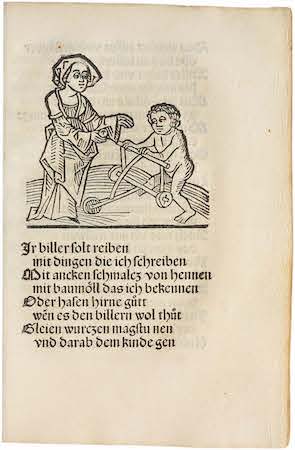 Ir biller solt reiben
mit dingen die ich schreiben
Mit ancken schmalcz von hennen
mit baumöll das ich bekennen
Oder hasen hirne gůtt
wen̄ es den billern wol thůt
Gleien wurczen magstu nen
vnd darab dem kinde gen